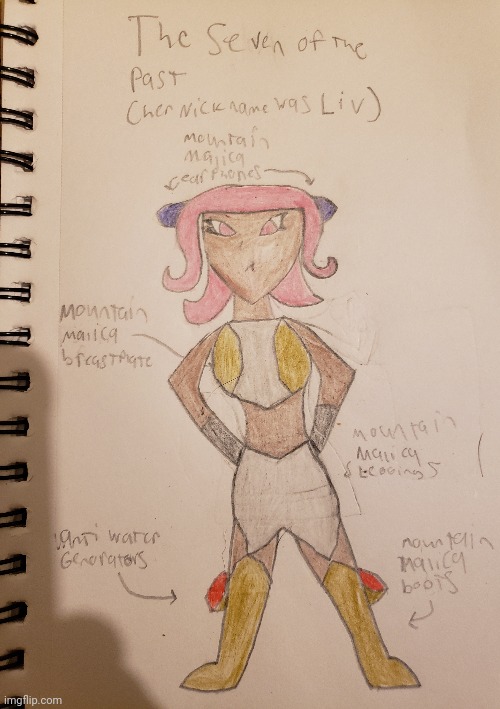 The Seven of the
Past
(her Nickname was Liv)
mountain
majica
earphones
mountain
majica
breastplate
mountain
majica
leggings
anti water
Generators
mountain
majica
boots
imgflip.com